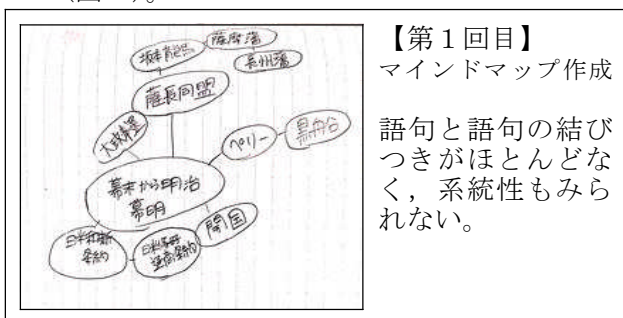 坂本龍馬
薩摩藩
長州藩
薩長同盟
大政奉還
ペリー
黒船
幕末から明治
幕明
開国
日米和親
条約
日米修好
通商条約
【第１回目】
マインドマップ作成
語句と語句の結び
つきがほとんどな
く，系統性もみら
れない。